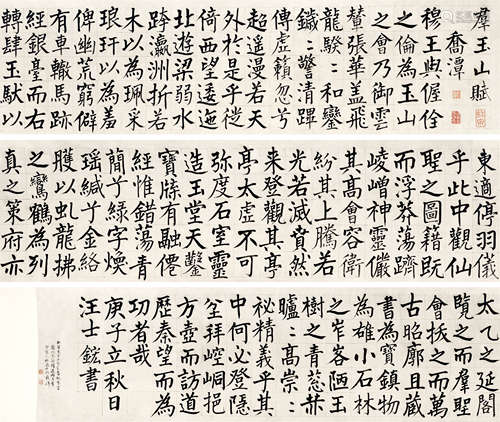 羣玉山賦
喬潭
穆王與偓佺
之倫為玉山
之會乃御雲
輦張華蓋飛
龍騤〻和鑾
鏘〻警清蹕
傳虛籟忽兮
超遥漫若天
外於是乎徙
倚西望逶迤
北遊梁弱水
跨瀛洲折若
木以為珮采
琅玕以為羞
俾幽荒窮僻
有車轍馬跡
經銀臺而右
轉肆玉軑以
東適停羽儀
乎此中觀仙
聖之圖籍既
而浮莽蕩躋
崚嶒神靈儼
其高會容衛
紛其上騰若
光若滅賁然
來登觀其亭
亭太虛不可
弥度石室寥
造玉堂天鑿
寶牒有融僊
經惟錯蕩青
簡兮綠字煥
瑶緘兮金絡
以虬龍拂
之鸞鶴為列
真之策府亦
太乙之延閣
覽之而羣聖
會披之而萬
古昭廓且藏
書為寶鎮物
為雄小石林
之岝峉陋玉
樹之青葱其
〻高崇〻
祕精義乎其
中何必登隱
坌拜崆峒挹
方壺而訪道
歷秦望而為
功者哉
庚子立秋日
汪士鋐書